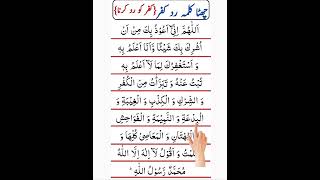 چھٹا کلمہ رد کفر {کفر کو رد کرنا}
اَللّٰهُمَّ اِنِّیْۤ اَعُوْذُ بِكَ مِنْ اَنْ
اُشْرِكَ بِكَ شَیْئًا وَّاَنَا اَعْلَمُ بِهٖ
وَ اَسْتَغْفِرُكَ لِمَا لَاۤ اَعْلَمُ بِهٖ
تُبْتُ عَنْهُ وَ تَبَرَّأْتُ مِنَ الْكُفْرِ
وَ الشِّرْكِ وَ الْكِذْبِ وَ الْغِیْبَةِ وَ
الْبِدْعَةِ وَ النَّمِیْمَةِ وَ الْفَوَاحِشِ
الْبُهْتَانِ وَ الْمَعَاصِیْ كُلِّهَا وَ
وَ اَقُوْلُ لَاۤ اِلٰهَ اِلَّا اللّٰهُ
مُحَمَّدٌ رَّسُوْلُ اللّٰهِ